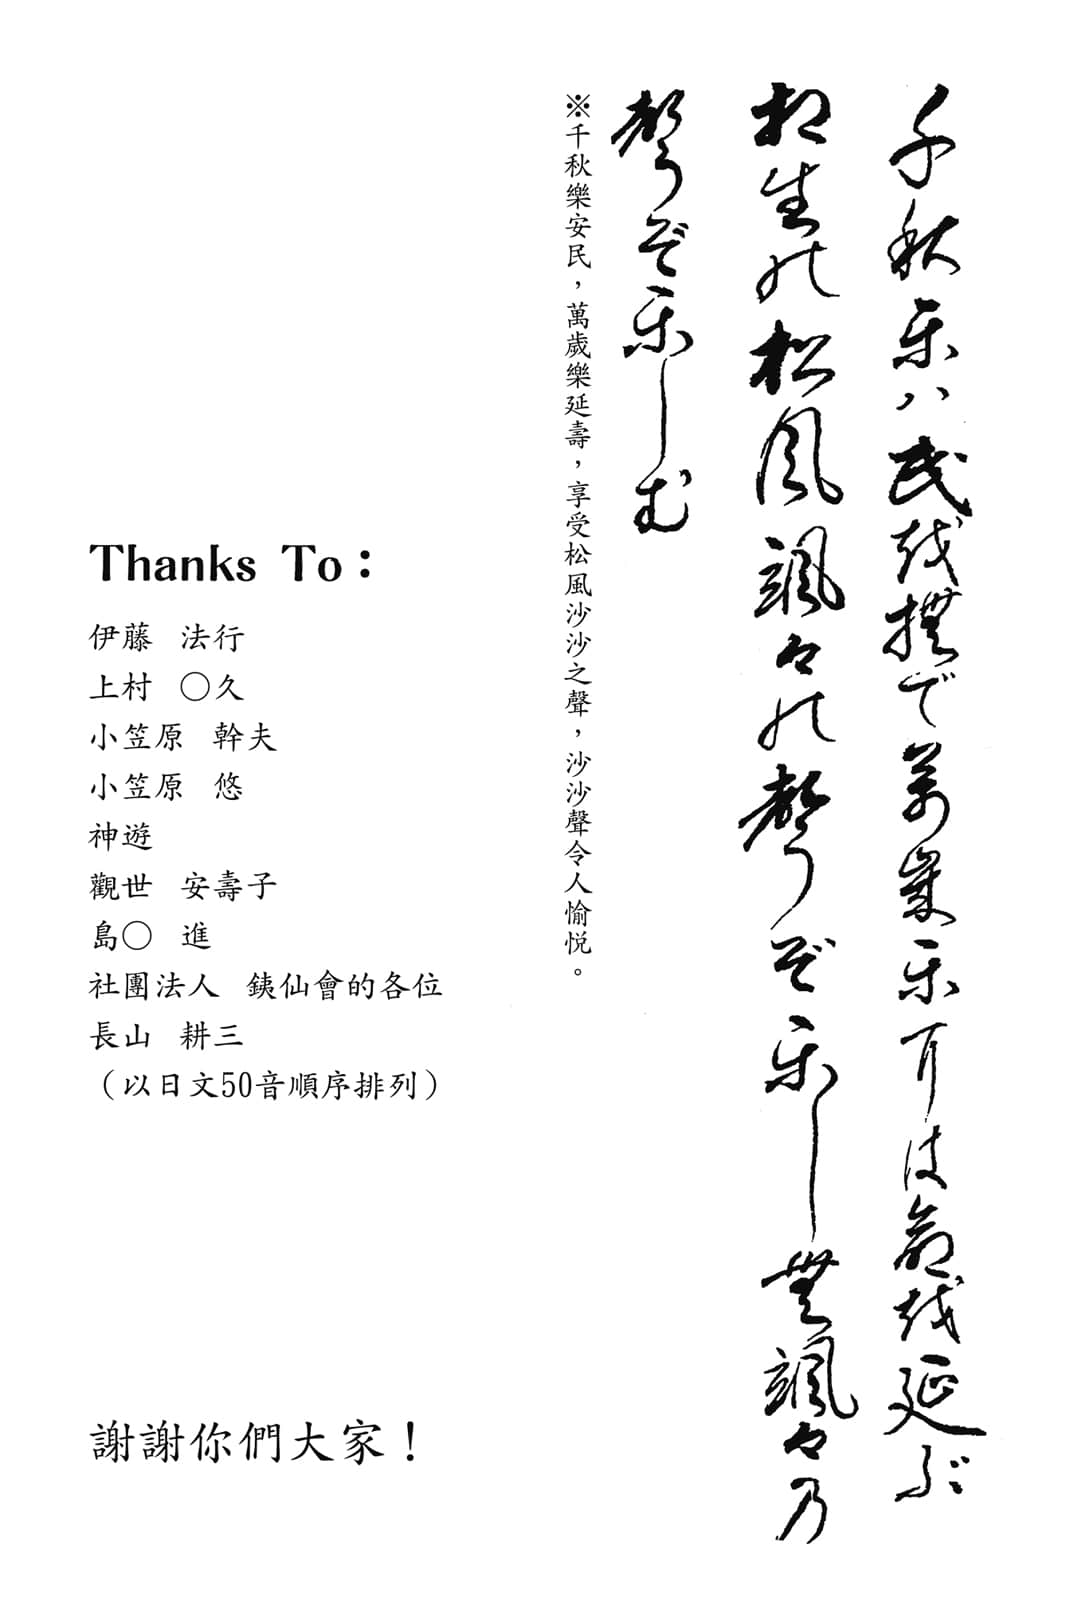 千秋楽ハ民越撫で萬歳楽耳は命越延ぶ
相生能松風颯々能聲ぞ楽し無颯々乃
聲ぞ楽しむ
※千秋樂安民，萬歲樂延壽，享受松風沙沙之聲，沙沙聲令人愉悅。
Thanks To：
伊藤 法行
上村 〇久
小笠原 幹夫
小笠原 悠
神遊
觀世 安壽子
島〇 進
社團法人 銕仙會的各位
長山 耕三
（以日文50音順序排列）
謝謝你們大家！